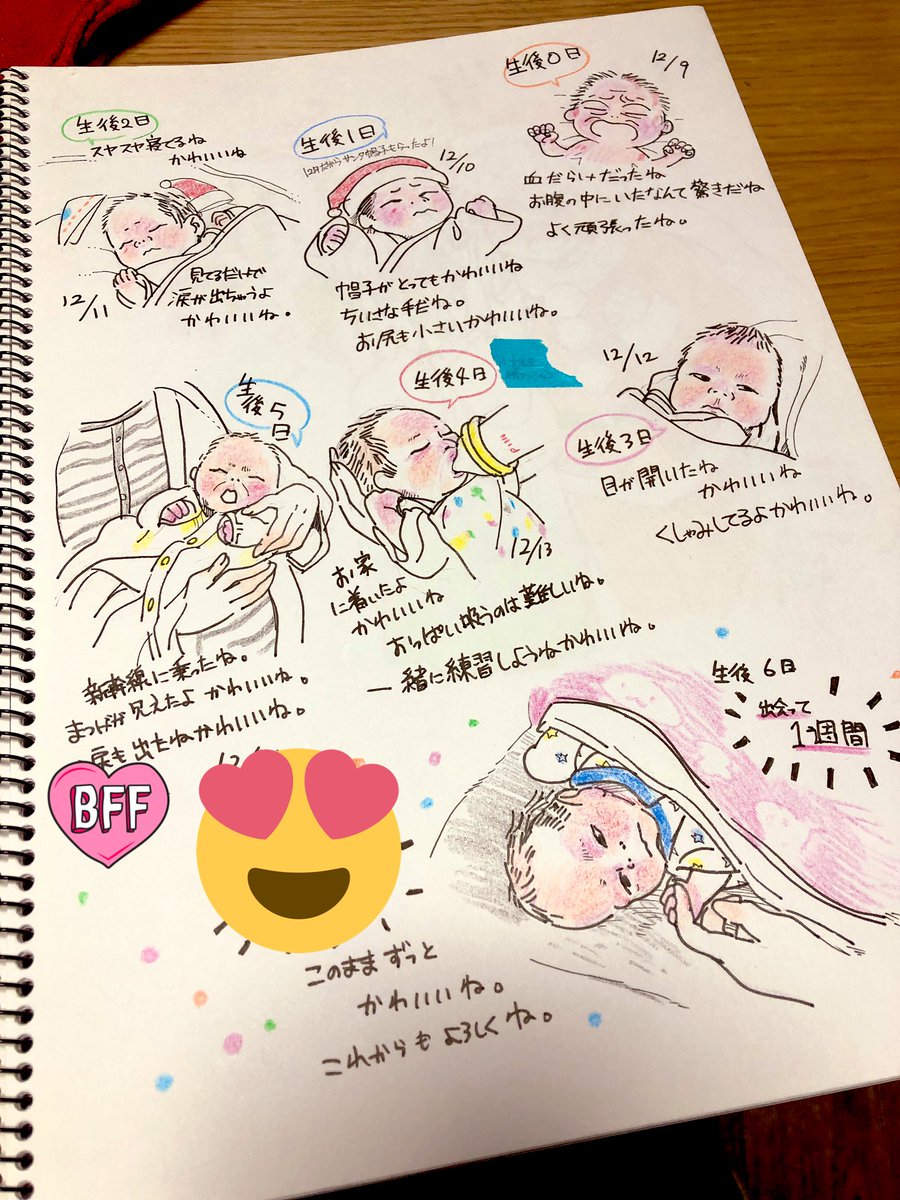 生後0日
12/9
血だらけだったね
お腹の中にいたなんて驚きだね
よく頑張ったね。
生後1日
12月だからサンタ帽子もらったよ!
12/10
帽子がとってもかわいいね
ちいさな手だね。
お尻も小さいかわいいね。
生後2日
スヤスヤ寝てるね
かわいいね
12/11
見てるだけで
涙が出ちゃうよ
かわいいね。
12/12
生後3日
目が開いたね
かわいいね
くしゃみしてるよかわいいね。
生後4日
12/13
お家
に着いたよ
かわいいね
おっぱい吸うのは難しいね。
一緒に練習しようねかわいいね。
生後5日
新幹線に乗ったね。
まつげが見えたよ かわいいね。
涙も出たねかわいいね。
生後6日
出会って
1週間
BFF
このままずっと
かわいいね。
これからもよろしくね。